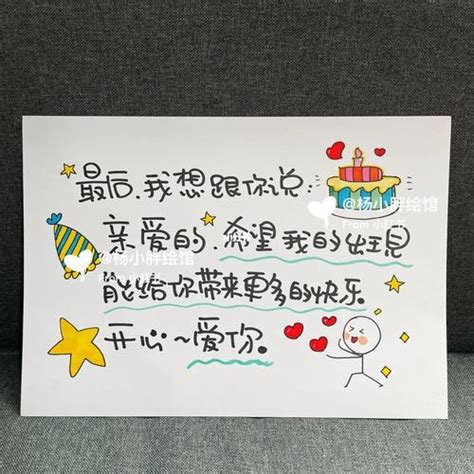 最后，我想跟你说：
亲爱的，希望我的出现
能给你带来更多的快乐。
开心~爱你。
@杨小胖绘馆
From 小红书
@杨小胖绘馆
From 小红书